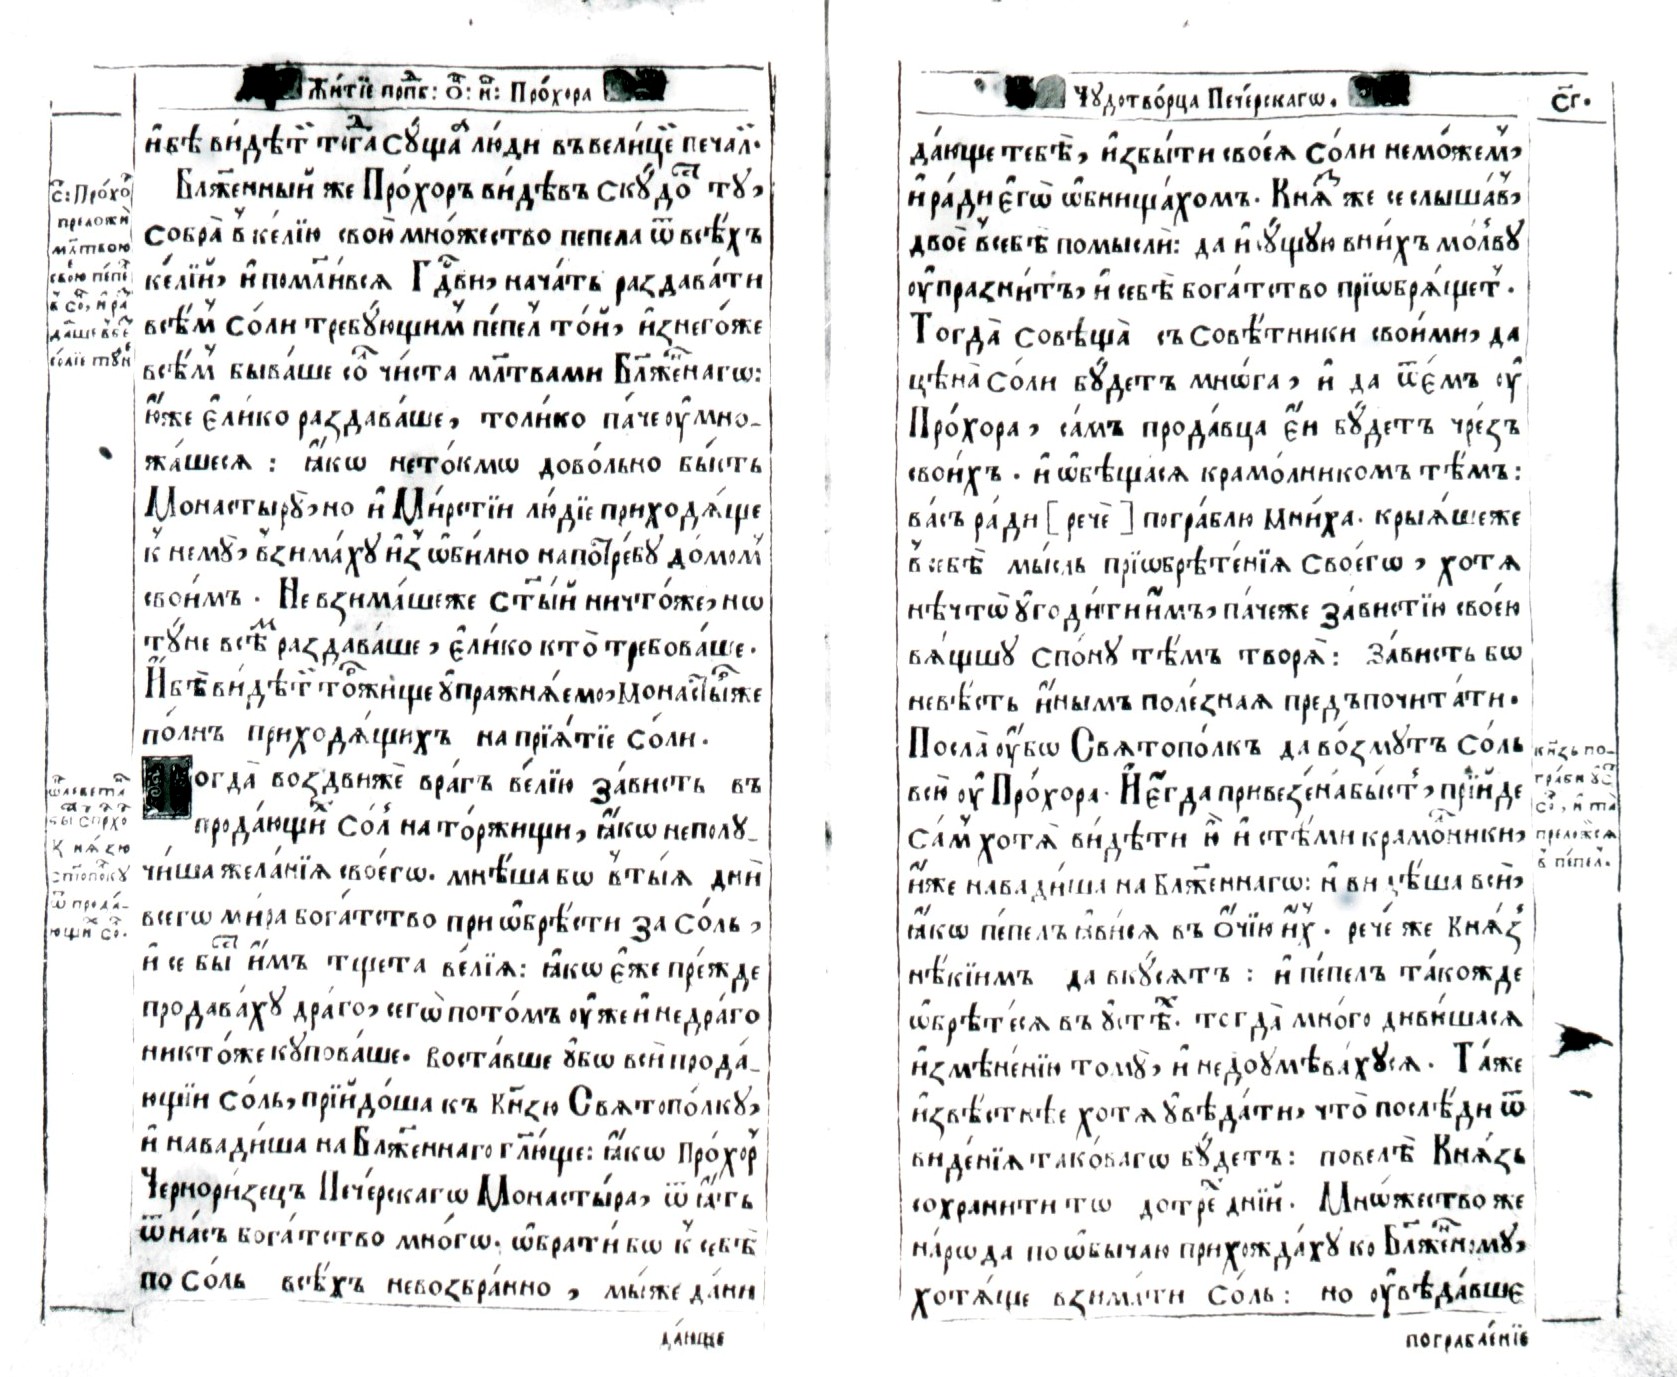 Житїе прпⷣб: Оⷮ: нⷲ: Про́хора
и҆ бѣ̀ ви́дѣтⷩ҇ тогⷣа̀ сꙋ́щаѧ лю́ди въ вели́цѣй печа́л.
Бл҃же́нный же Про́хоръ ви́дѣвъ скꙋ́доⷭ҇ тꙋ̀,
собра̀ в̾ ке́лїю свою̀ мно́жество пепела ѿ всѣ́хъ
ке́лїй, и҆ помл҃и́всѧ Гдⷭ҇ви, нача́тъ раздава́ти
всѣ́м̾ со́ли тре́бꙋющим̾ пе́пел̾ то́й, и҆з̾него́же
всѣ́м̾ быва́ше соⷧ҇ чи́ста мл҃твами Бл҃же́ннагѡ:
ю҆́же є҆ли́ко раздава́ше, толи́ко па́че ᲂу҆мно-
жа́шесѧ : ꙗ҆́кѡ не то́кмѡ дово́льно бы́сть
Монастырꙋ̀, но и҆ Ми́рстїи лю́дїе приходѧ́ще
к̾ немꙋ̀, в̾зима́хꙋ и҆з̾ ѡ҆би́лно на потре́бꙋ домо́м̾
свои́мъ . Не взима́шеже ст҃ы́й ничто́же, нѡ
тꙋ́не всѣⷨ раздава́ше, є҆ли́ко кто̀ тре́боваше.
И҆ бѣ̀ ви́дѣтⷩ҇ то́ржище ᲂу҆пражнѧ́емо, монасты́рже
по́лнъ приходѧ́щихъ на прїѧ́тїе со́ли.
Тогда̀ воздви́же вра́гъ ве́лїю за́висть въ
продаю́щиⷯ со́л̾ на то́ржищи, ꙗ҆́кѡ не полꙋ-
чи́ша жела́нїѧ своегѡ̀. мнѣ́ша бѡ в̾ ты́ѧ дни̑
всегѡ̀ ми́ра бога́тство при ѡ҆брѣ́сти за со́ль,
и҆ се бы́сть и҆̀мъ тщета ве́лїѧ: ꙗ҆́кѡ є҆́же пре́жде
продава́хꙋ дра́го, сегѡ̀ пото́мъ ᲂу҆же и҆ не дра́го
никто́же кꙋпова́ше. воста́вше ᲂу҆́бѡ всѝ прода-
ю́щїи со́ль, прїидо́ша къ кн҃зю Свѧтопо́лкꙋ,
и҆ навади́ша на Бл҃же́ннаго гл҃юще: ꙗ҆́кѡ Про́хор̾
Черно́ризецъ Пече́рскагѡ Монастырѧ̀, ѿѧ́тъ
ѿ на́съ бога́тство мно́гѡ. ѡ҆брати́ бѡ к̾ себѣ̀
по со́ль всѣ́хъ невозбра́нно, мы́же да́ни
да́юще
с: Про́хоⷬ
преложѝ
мл҃твою
свое́ю пе́пеⷧ
в̾ соⷧ҇, и҆ ра
да́ше в̾сѣⷨ
со́лїе тꙋ́н
Чꙋдотво́рца Пече́рскагѡ.
сг.
да́юще тебѣ̀, и҆збы́ти своеѧ̀ со́ли не мо́жем̾,
и҆ ра́ди є҆гѡ̀ ѡ҆бнища́хомъ. Кнѧ́зь же се слы́шав̾,
дво́е в̾себѣ̀ помы́сли: да и҆ сꙋ́щꙋю в ни́хъ мо́лвꙋ
ᲂу҆празни́тъ, и҆ себѣ̀ бога́тство прїѡбрѧ́щет̾.
Тогда̀ совѣща̀ съ совѣ́тники свои́ми, да
цѣна̀ со́ли бꙋ́детъ мнѡ́га, и҆ да ѿе́мъ ᲂу҆
Про́хора, са́мъ прода́вца є҆ѝ бꙋ́детъ чре́зъ
свои́хъ. и҆ ѡ҆бѣща́сѧ крамо́лникомъ тѣ́мъ:
ва́съ ра́ди [речѐ] погра́блю мни́ха. крыѧ́шеже
в̾ себѣ̀ мы́сль прїѡбрѣте́нїѧ своегѡ̀, хотѧ̀
нѣ́чтѡ ᲂу҆годи́ти и҆̀мъ, па́чеже за́вистїю свое́ю
вѧ́щшꙋ спо́нꙋ тѣ́мъ творѧ̀: за́висть бѡ
невѣ́сть и҆́нымъ поле́знаѧ предъпочита́ти.
Посла̀ ᲂу҆́бѡ Свѧтопо́лкъ да во́змꙋтъ со́ль
всю̀ ᲂу҆ Про́хора. И҆ є҆гда̀ привезе́на бы́ст̾, прїи́де
са́м̾ хотѧ̀ ви́дѣти ю҆̀ и҆ с тѣ́ми крамо́лники,
и҆́же навади́ша на Бл҃же́ннагѡ: и҆ ви́дѣша всѝ,
ꙗ҆́кѡ пе́пелъ ꙗ҆ви́сѧ въ ѻ҆́чїю и҆́х̾. рече́ же Кнѧ́з̾
нѣ́кїимъ да вкꙋ́сѧтъ : и҆ пе́пелъ та́кожде
ѡ҆брѣ́тесѧ въ ᲂу҆стѣⷯ. тогда̀ мно́го диви́шасѧ
и҆змѣне́нїю томꙋ̀, и҆ недоꙋмѣва́хꙋсѧ. Та́же
и҆звѣ́стнѣе хотѧ̀ ᲂу҆вѣ́дати, что̀ послѣдѝ ѿ
ви́денїѧ таково́агѡ бꙋ́детъ: повелѣ̀ Кнѧ́зь
сохрани́ти тѡ̀ до трех̾ дні́й. Мнѡ́жество же
на́рѡда по ѡ҆бы́чаю прихожда́хꙋ ко Бл҃же́нномꙋ,
хотѧ́ще взима́ти со́ль: но ᲂу҆вѣ́давше
пограбле́нїе
кн҃зь по-
гра́би ᲂу҆ сⷮ
соⷧ҇, и҆ та̀
преложи́сѧ
в̾ пе́пел̾.